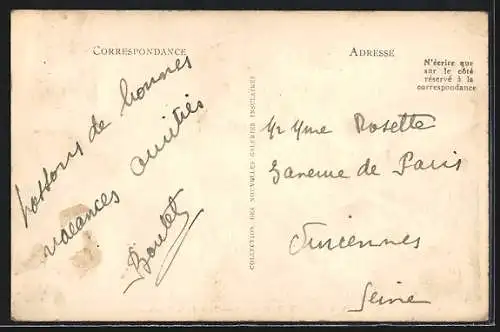 CORRESPONDANCE
passons de bonnes
vacances amitiés
Boulet
COLLECTION DES NOUVELLES GALERIES INSULAIRES
ADRESSE
N'écrire que
sur le côté
réservé à la
correspondance
Mr Mme Rosette
de Paris
Vincennes
Seine